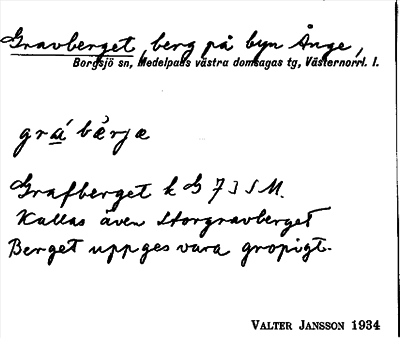 Gravberget, berg på byn Ånge,
Borgsjö sn, Medelpads västra domsagas tg, Västernorrl. l.
grá bæ̀rjæ
Grafberget k G 7 J S M.
Kallas även Storgravberget
Berget uppges vara gropigt.
VALTER JANSSON 1934